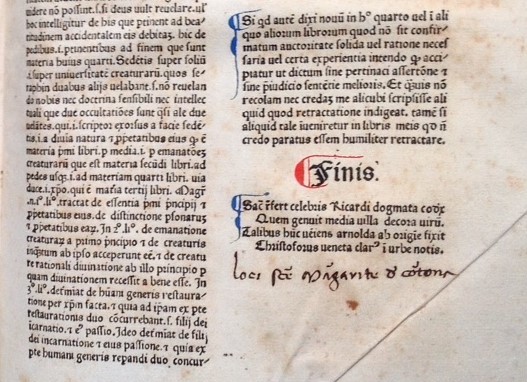 uidere nõ possint. s. si deus uult reuelare. ul'
hoc intelligitur de his que ptinent ad bea-
titudinem accidentalem eis debitaz. hic de
pedibus. i. ptinentibus ad finem que sunt
materia quarti. Sedẽtis super soliũ
i. super uniuersitatẽ creaturarũ. quos se-
raphin duabus alijs uelabant. s. nõ reuelan
do nobis nec doctrina sensibili nec intellec
tuali que due occultatiões sunt qsi ale due
materia pmi libri. p media. i. p emanatões
creaturarũ que est materia secũdi libri. ad
pedes usqz. i. ad materiam quarti libri. uia
duce. i. xpo. qui ẽ mã tertij libri.
tractat de essentia pmi pncipij et
pprietatibus eius. de distinctione psonarum
et pprietatibus eaz. In de emanatione
creaturaz a primo pncipio et de creaturis
inqtum ab ipso acceperunt eẽ. et de creatu
re rationali diuinatione ab illo principio p
quam diuinationem recessit a bene esse. In
defmiat de hũani generis restaura-
tione per xpm facta. et quia ad ipam ex pte
restaurationis duo cõcurrebant. s. filij dei
icarnatio. et eius passio. Ideo defmiat de filij
dei incarnatione et eius passione. et quia ex
pte humani generis reparandi duo concur-
Si qd autẽ dixi nouũ in hoc quarto uel ĩ ali
quo aliorum librorum quod nõ sit confir-
matum auctoritate solida uel ratione neces
saria uel certa experientia intendo qp acci
piatur ut dictum sine pertinaci assertõne et
sine piudicio sentẽtie melioris. Et quis nõ
recolam nec credaz me alicubi scripsisse ali
quid quod retractatione indigeat. tamẽ si
aliquid tale iueniretur in libris meis qd nõ
credo paratus essem humiliter retractare.
Finis.
Sacra refert celebris Ricardi dogmata codex
Quem genuit media uilla decora uirũ.
Talibus huc ueiens arnolda ab origie fixit
Christoforus veneta clar' i urbe notis.
loci Stẽ Margarite d Cortona